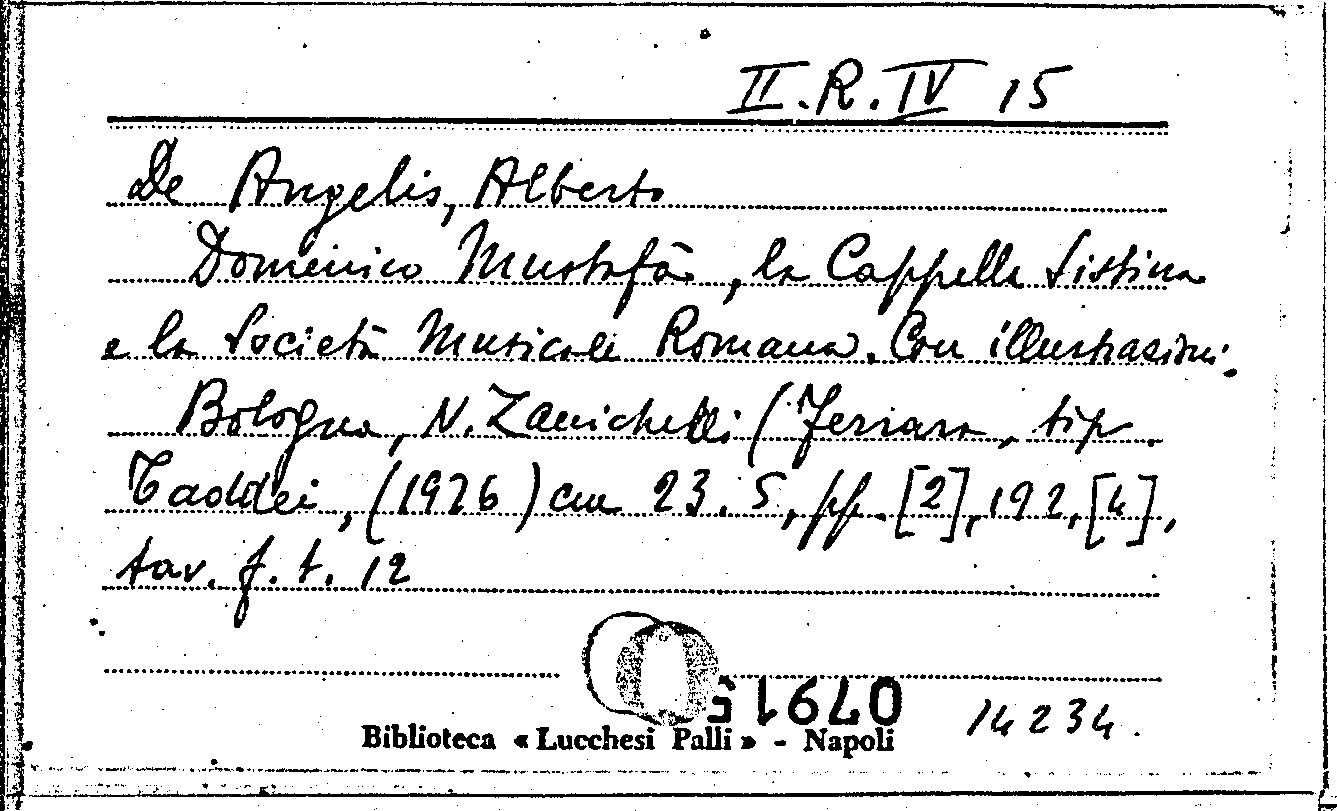 II.R.IV 15
De Angelis, Alberto
Domenico Mustafà, la Cappella Sistina
e la Società Musicale Romana. Con illustrazioni.
Bologna, N. Zanichelli (Ferrara, tip.
Taddei, (1926) cm 23.5, pp. [2], 192, [4],
tav. f. t. 12
07915
14234.
Biblioteca « Lucchesi Palli » - Napoli